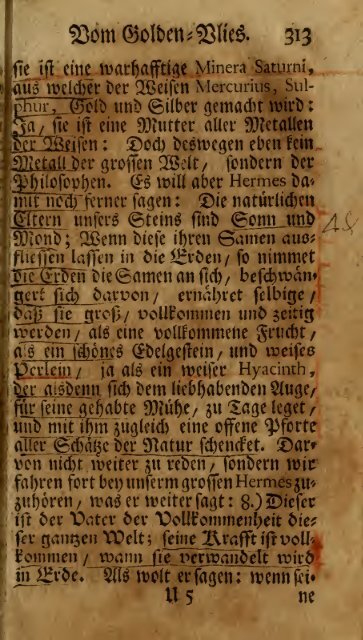 Vom Golden-Vlies. 313
sie ist eine warhafftige Minera Saturni,
aus welcher der Weisen Mercurius, Sul-
phur, Gold und Silber gemacht wird:
Ja, sie ist eine Mutter aller Metallen
der Weisen: Doch deswegen eben kein
Metall der grossen Welt, sondern der
Philosophen. Es will aber Hermes da-
mit noch ferner sagen: Die natürlichen
Eltern unsers Steins sind Sonn und
Mond; Wenn diese ihren Samen aus-
fliessen lassen in die Erden, so nimmet
die Erden die Samen an sich, beschwän-
gert sich darvon, ernähret selbige,
daß sie groß, vollkommen und zeitig
werden, als eine vollkommene Frucht,
als ein schönes Edelgestein, und weises
Perlein, ja als ein weiser Hyacinth,
der alsdenn sich dem liebhabenden Auge,
für seine gehabte Mühe, zu Tage leget,
und mit ihm zugleich eine offene Pforte
aller Schätze der Natur schencket. Dar-
von nicht weiter zu reden, sondern wir
fahren fort bey unserm grossen Hermes zu-
zuhören, was er weiter sagt: 8.) Dieser
ist der Vater der Vollkommenheit die-
ser gantzen Welt; seine Krafft ist voll-
kommen, wann sie verwandelt wird
in Erde. Als wolt er sagen: wenn sei-
U 5 ne